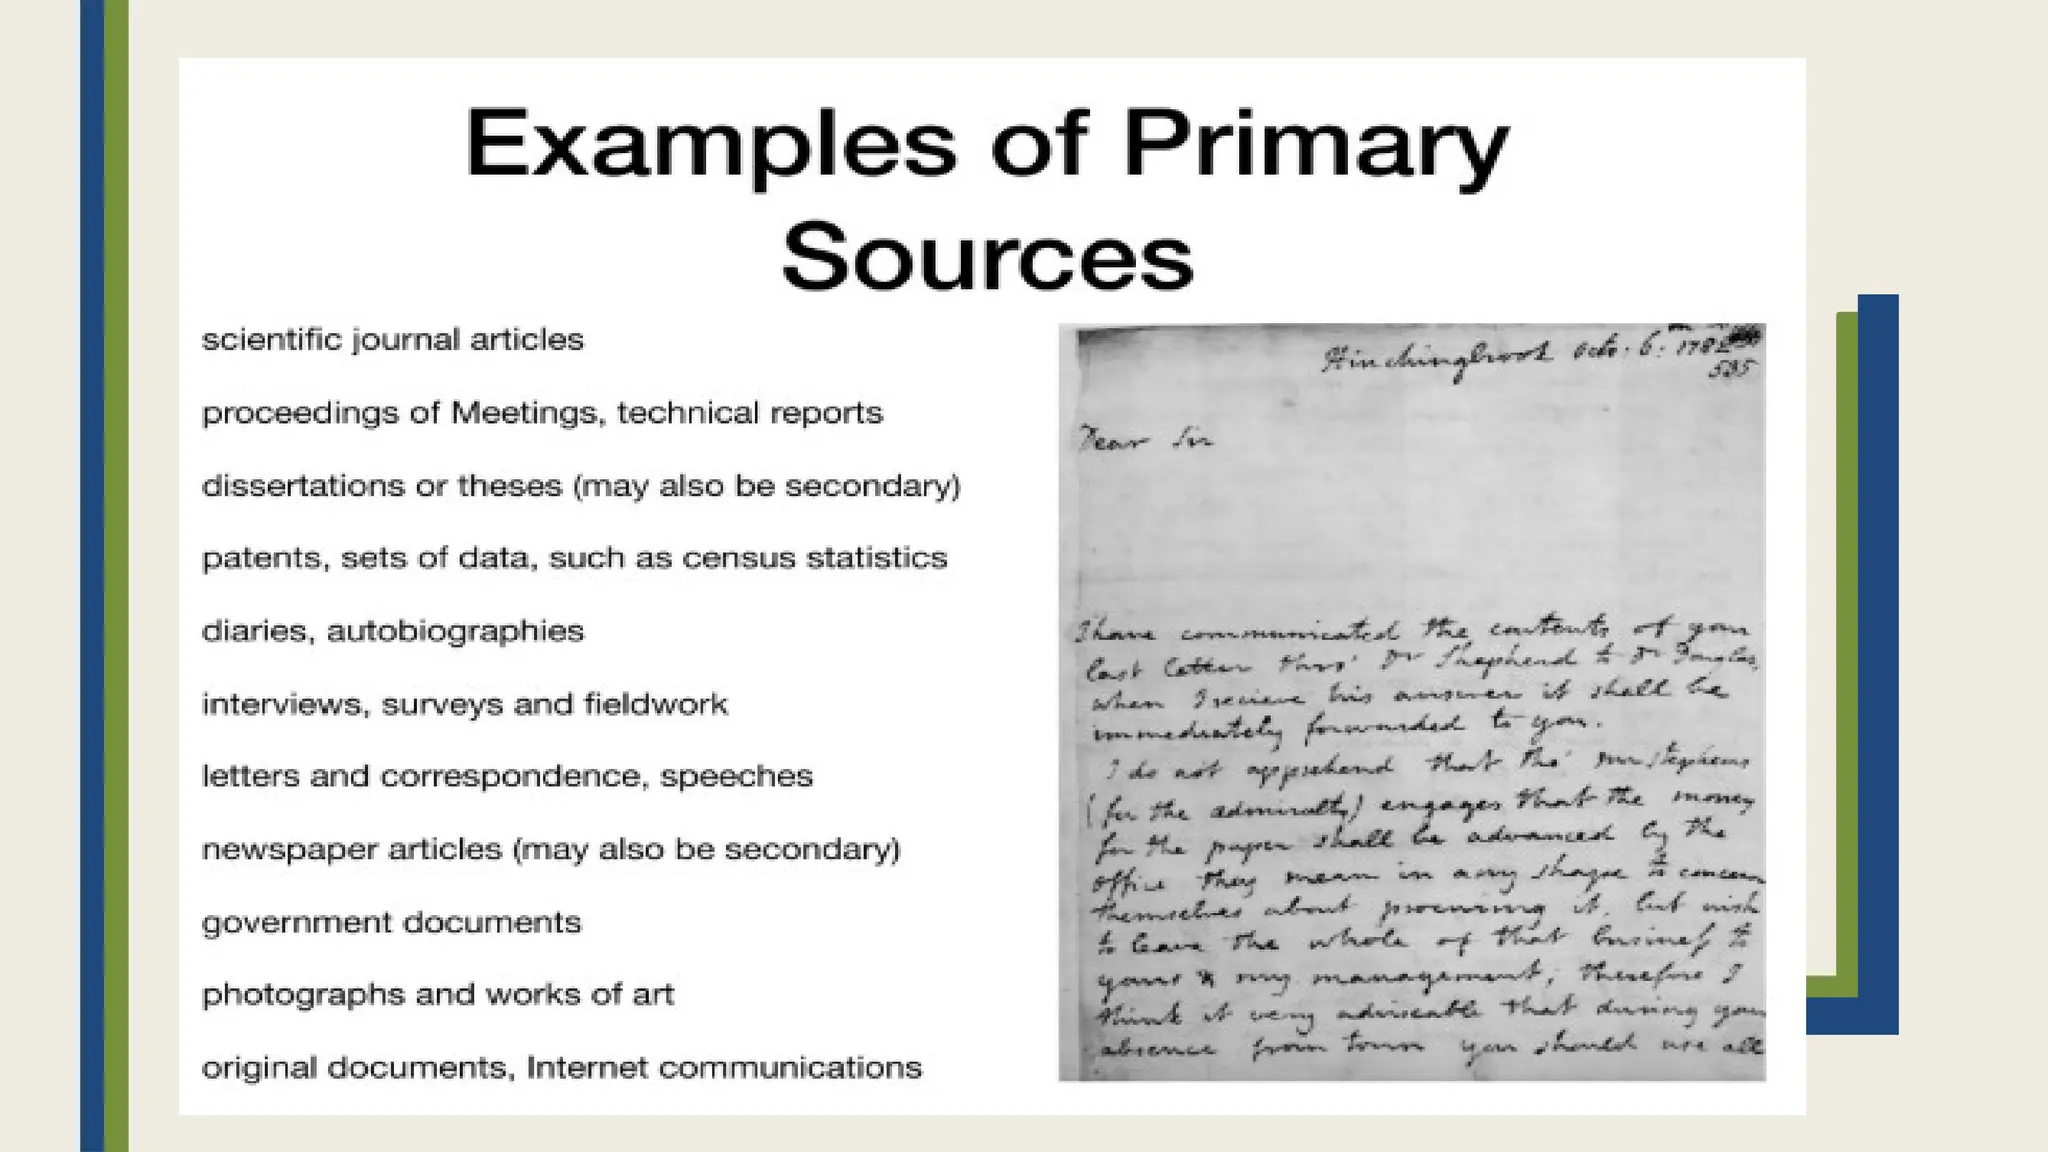 Examples of Primary
Sources
scientific journal articles
proceedings of Meetings, technical reports
dissertations or theses (may also be secondary)
patents, sets of data, such as census statistics
diaries, autobiographies
interviews, surveys and fieldwork
letters and correspondence, speeches
newspaper articles (may also be secondary)
government documents
photographs and works of art
original documents, Internet communications
Hinchingbrook Octo. 6. 178
Dear Sir
I have communicated the contents of your
last letter thro' Dr Shepherd to Dr Douglas,
when I recieve his answer it shall be
immediately forwarded to you.
I do not apprehend that tho' Mr Stephens
(for the admiralty) engages that the money
for the paper shall be advanced by the
office they mean in any shape to concern
themselves about procuring it, but wish
to leave the whole of that business to
yours & my management, therefore I
think it very adviseable that during your
absence from town you should use all